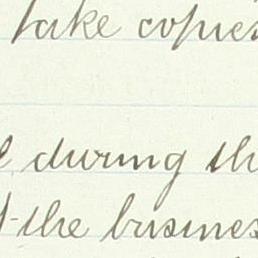 take copies
during th
the busines